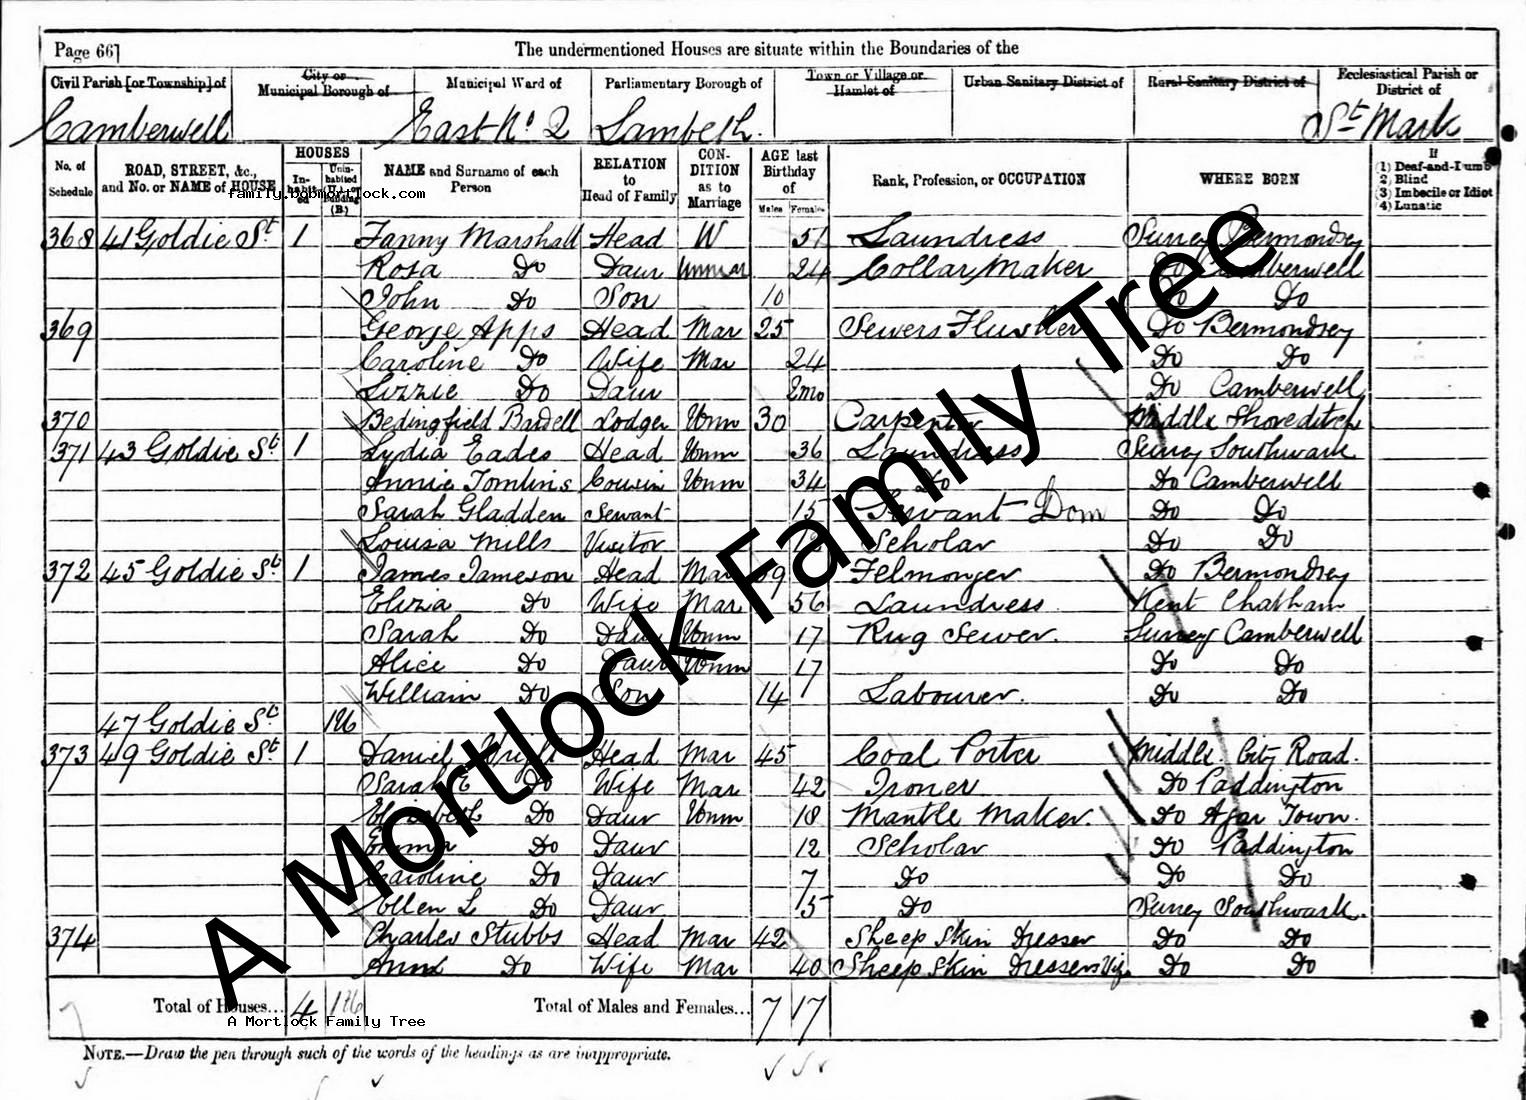 Page 66]
The undermentioned Houses are situate within the Boundaries of the
Civil Parish [or Township] of
City or Municipal Borough of
Municipal Ward of
Parliamentary Borough of
Town or Village or Hamlet of
Urban Sanitary District of
Rural Sanitary District of
Ecclesiastical Parish or District of
Camberwell East No 2 Lambeth. St Mark
No. of Schedule
ROAD, STREET, &c., and No. or NAME of HOUSE
HOUSES
Inhabited
Uninhabited (U.) or Building (B.)
NAME and Surname of each Person
RELATION to Head of Family
CONDITION as to Marriage
AGE last Birthday of
Males Females
Rank, Profession, or OCCUPATION
WHERE BORN
If
(1) Deaf-and-Dumb
(2) Blind
(3) Imbecile or Idiot
(4) Lunatic
family.bobmortlock.com
368 41 Goldie St 1 Fanny Marshall Head W 51 Laundress Surrey Bermondsey
Rosa Do Daur Unmar 24 Collar Maker Do Camberwell
John Do Son 10 Do Do
369 George Apps Head Mar 25 Sewers Flusher Do Bermondsey
Caroline Do Wife Mar 24 Do Do
Lizzie Do Daur 2mo Do Camberwell
370 Bedingfield Bardell Lodger Unm 30 Carpenter Middlx Shoreditch
371 43 Goldie St 1 Lydia Eades Head Unm 36 Laundress Surrey Southwark
Annie Tomlins Cousin Unm 34 Do Do Camberwell
Sarah Gladden Servant 15 Servant Dom Do Do
Louisa Mills Visitor Scholar Do Do
372 45 Goldie St 1 James Jameson Head Mar 59 Felmonger Do Bermondsey
Eliza Do Wife Mar 56 Laundress Kent Chatham
Sarah Do Daur Unm 17 Rug Sewer. Surrey Camberwell
Alice Do Daur Unm 17 Do Do
William Do Son 14 Labourer. Do Do
47 Goldie St 1U
373 49 Goldie St 1 Daniel Wright Head Mar 45 Coal Porter Middlx. City Road.
Sarah E Do Wife Mar 42 Ironer Do Paddington
Elizabeth Do Daur Unm 18 Mantle Maker. Do Agar Town.
Emma Do Daur 12 Scholar Do Paddington
Caroline Do Daur 7 Do Do Do
Ellen L Do Daur 5 Do Surrey Southwark.
374 Charles Stubbs Head Mar 42 Sheep Skin Dresser Do Do
Ann Do Wife Mar 40 Sheep Skin Dressers Wife Do Do
Total of Houses... 4 1U Total of Males and Females... 7 17
A Mortlock Family Tree
NOTE.—Draw the pen through such of the words of the headings as are inappropriate.
A Mortlock Family Tree